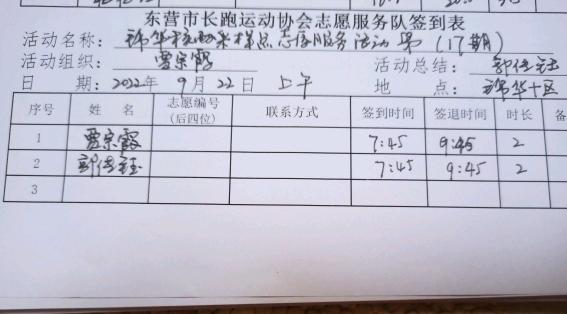 东营市长跑运动协会志愿服务队签到表
活动名称：锦华核酸采样点志愿服务活动第（17期）
活动组织：贾宗霞 活动总结：郭佳钰
日 期：2022年9月22日上午 地 点：锦华十区
序号 姓 名 志愿编号（后四位） 联系方式 签到时间 签退时间 时长 备
1 贾宗霞 7:45 9:45 2
2 郭佳钰 7:45 9:45 2
3